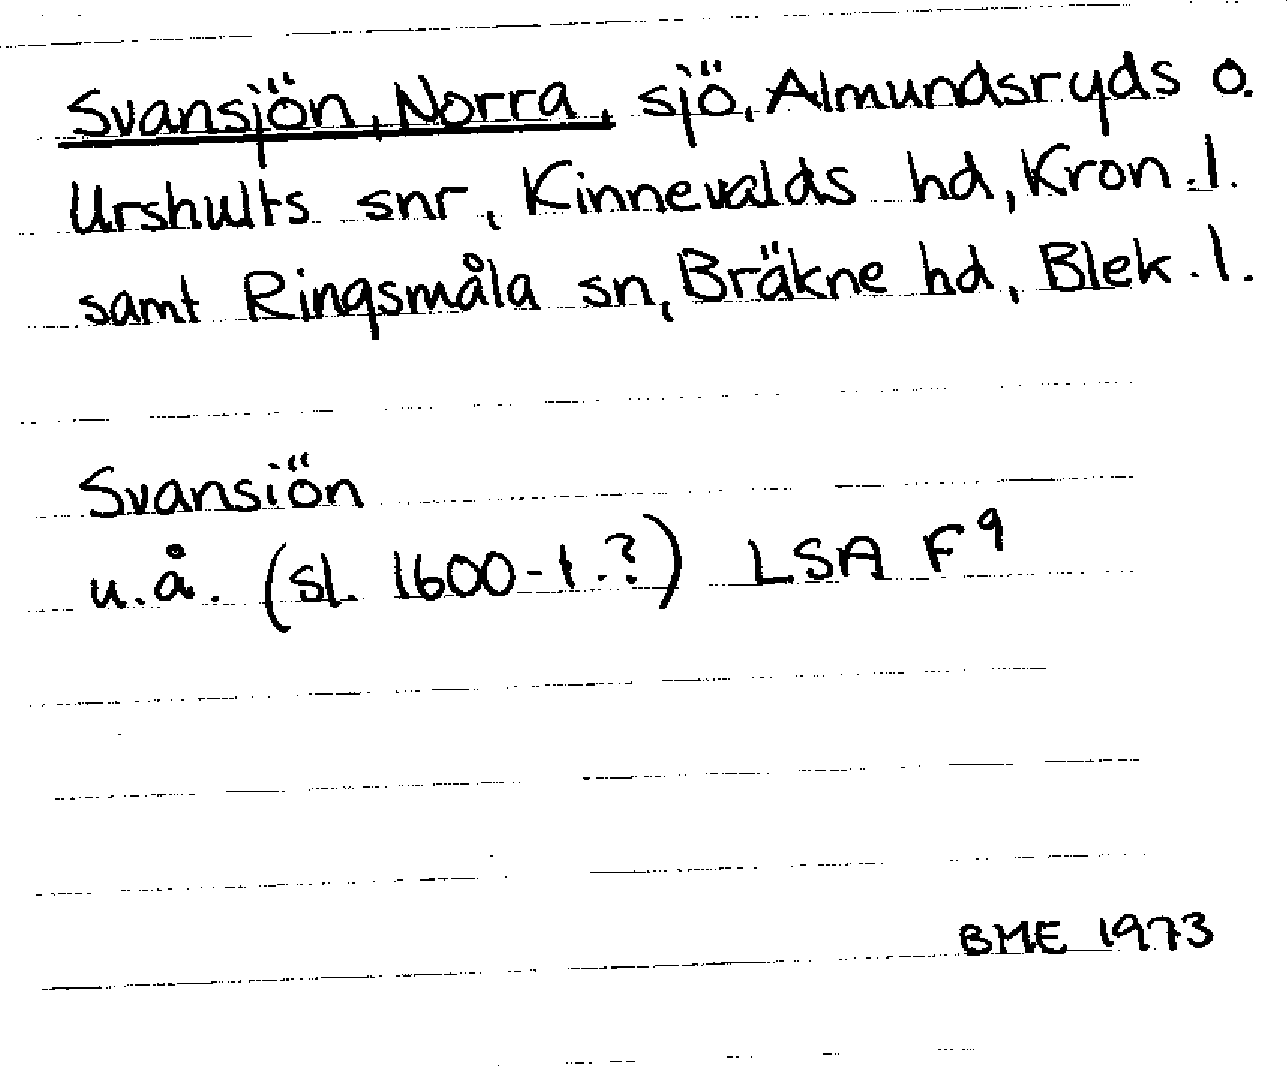 Svansjön, Norra, sjö, Almundsryds o.
Urshults snr, Kinnevalds hd, Kron.l.
samt Ringsmåla sn, Bräkne hd, Blek.l.
Svansiön
u.å. (sl. 1600-t.?) LSA F⁹
BME 1973